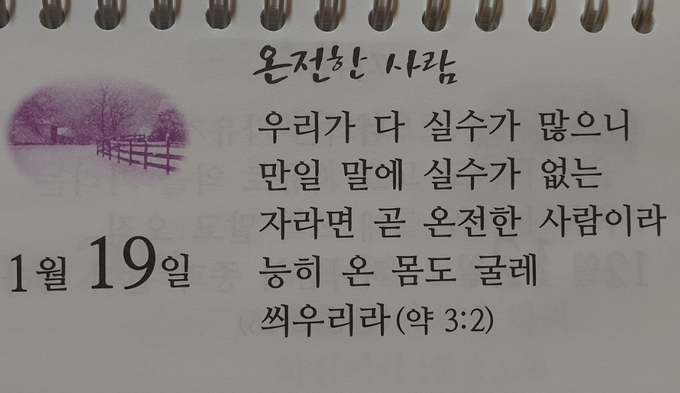 온전한 사람
우리가 다 실수가 많으니
만일 말에 실수가 없는
자라면 곧 온전한 사람이라
능히 온 몸도 굴레
씌우리라(약 3:2)
1월 19일